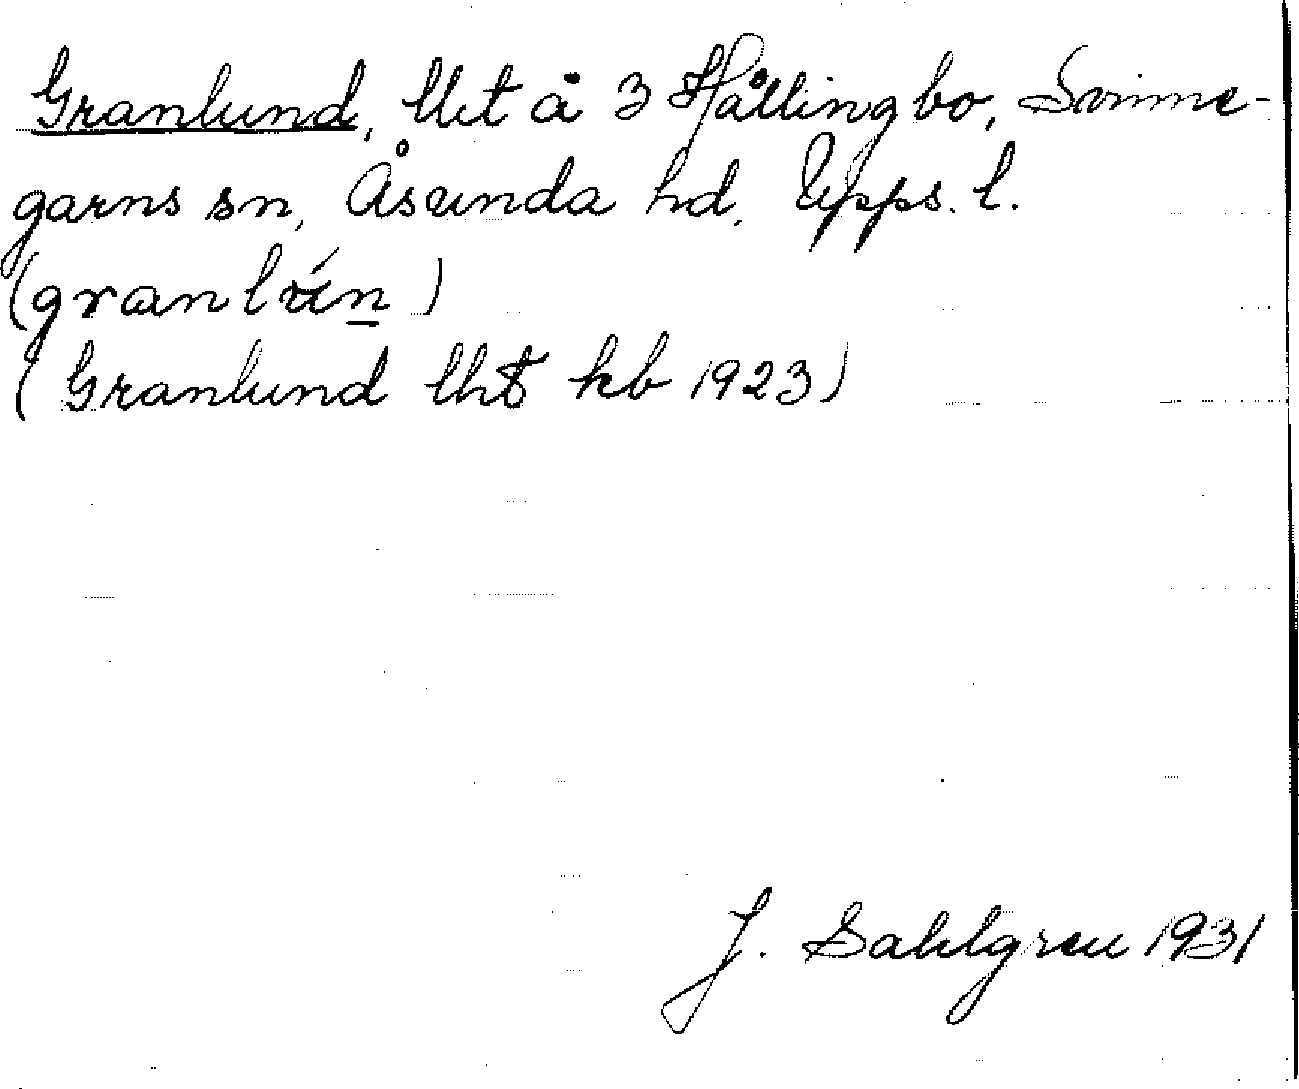 Granlund, llet å 3 Hållingbo, Svinne-
garns sn, Åsunda hd, Upps. l.
(granlún)
(Granlund lht kb 1923)
J. Sahlgren 1931